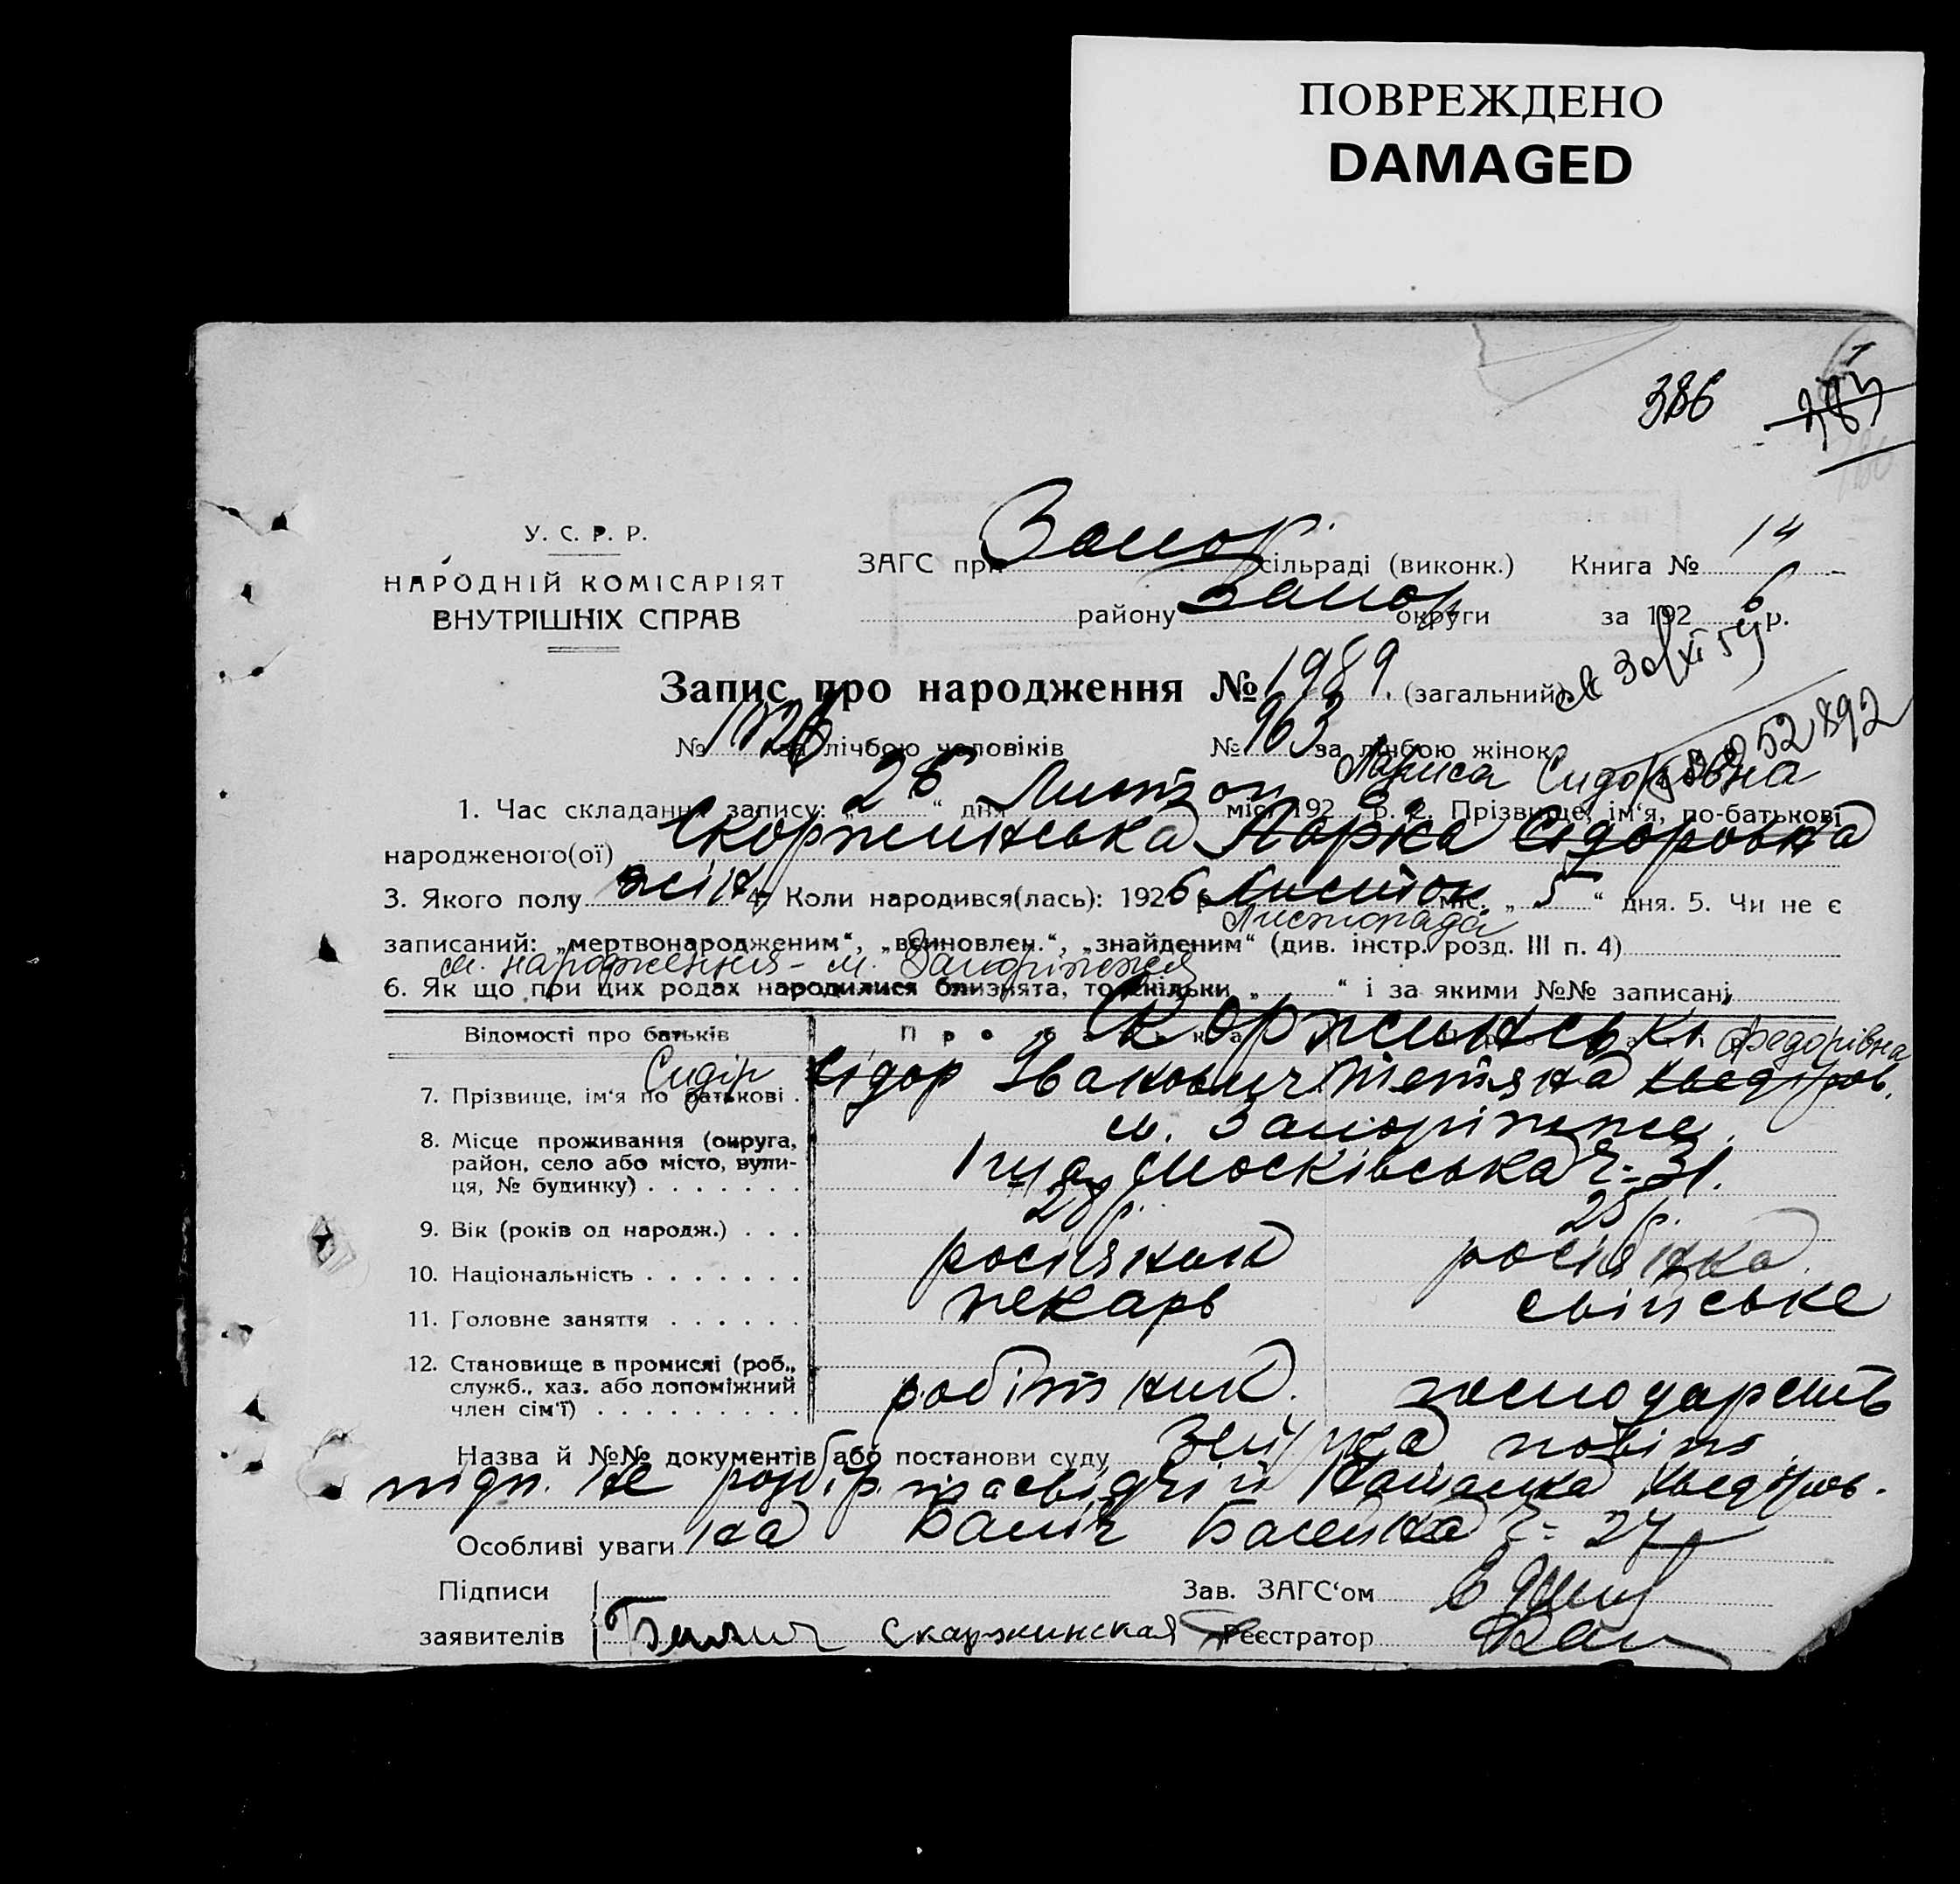 ПОВРЕЖДЕНО
DAMAGED
386
У. С. Р. Р.
НАРОДНІЙ КОМІСАРІЯТ
ВНУТРІШНІХ СПРАВ
ЗАГС при Запор. сільраді (виконк.) Книга № 14
району Запор округи за 1926 р.
Запис про народження № 1989. (загальний)
№ 1026 за лічбою чоловіків № 963 за лічбою жінок
52892
Лариса Сидорівна
1. Час складання запису: „26“ дня Листоп міс. 1926 р. 2. Прізвище, ім‘я, по-батькові
народженого(ої) Скоржинська Лариса Сідоровна
3. Якого полу жін 4. Коли народився(лась): 1926 р. Листоп міс. „5“ дня. 5. Чи не є
Листопада
записаний: „мертвонародженим“, „всиновлен.“, „знайденим“ (див. інстр. розд. III п. 4)
м. народження - м. Запоріжжя
6. Як що при цих родах народилися близнята, то скільки „ “ і за якими №№ записані
Відомості про батьків Скоржинськи
Сидір Федорівна
7. Прізвище, ім‘я по батькові . Сідор Іванович Тетяна
8. Місце проживання (округа, район, село або місто, вулиця, № будинку) м. Запоріжже
Московська 31.
9. Вік (років од народж.) 28 р. 25 р.
10. Національність росіянин росіянка
11. Головне заняття пекарь свійське
12. Становище в промислі (роб., служб., хаз. або допоміжний член сім‘ї) робітник. господарств
Назва й №№ документів або постанови суду
підп. не розбір. засвідчій
Особливі уваги 27
Підписи Зав. ЗАГС‘ом
заявителів Скаржинская Реєстратор